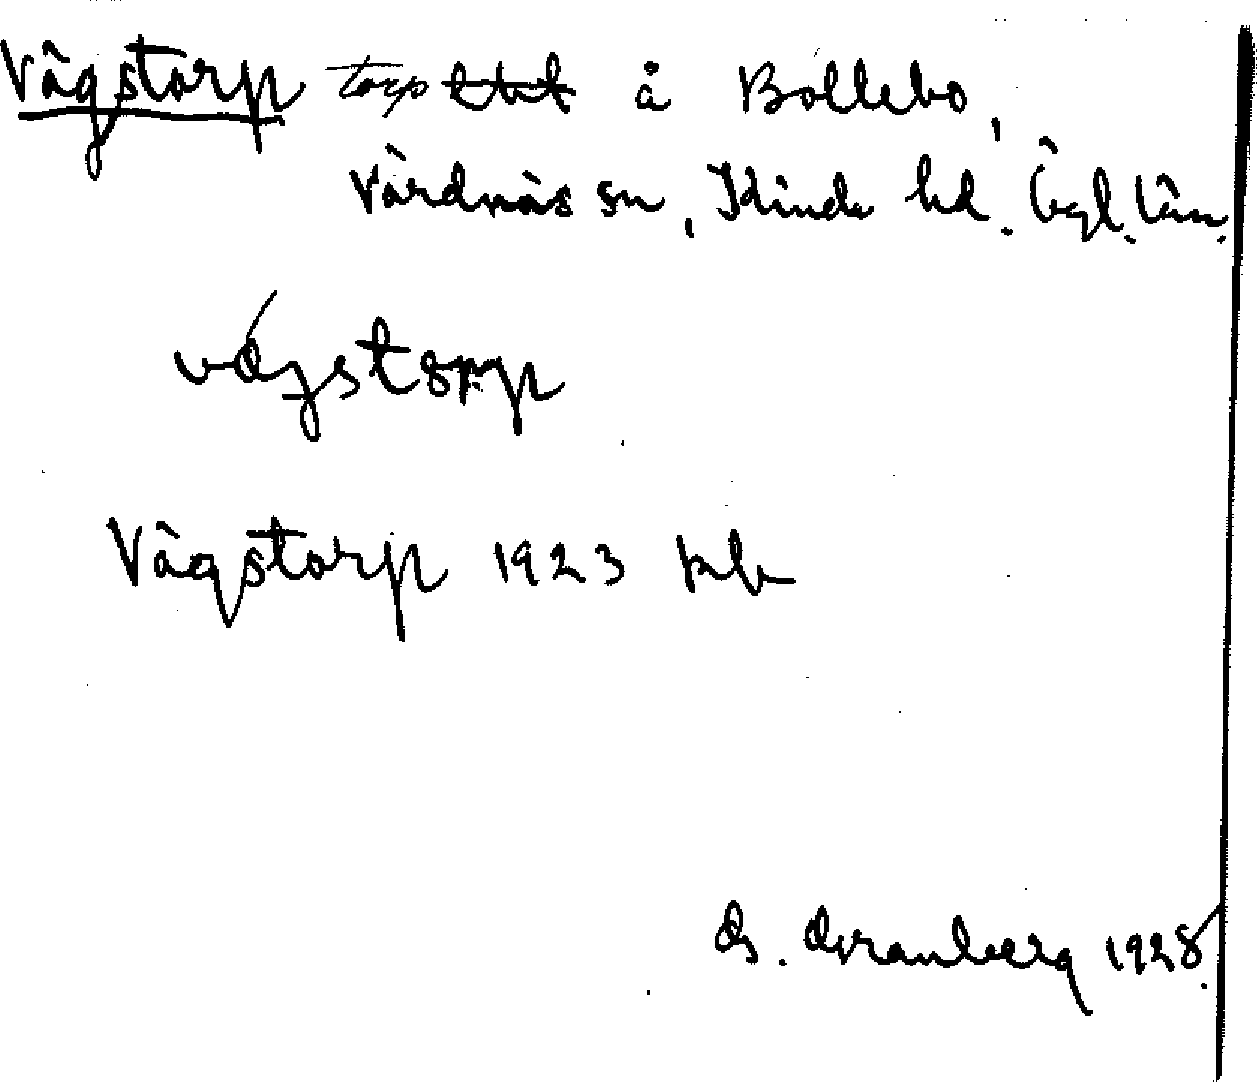 Vågstorp torp å Bollebo,
Vårdnäs sn, Kinda hd. Ögl. län.
Vågstorp 1923 kb
G. Granberg 1928.